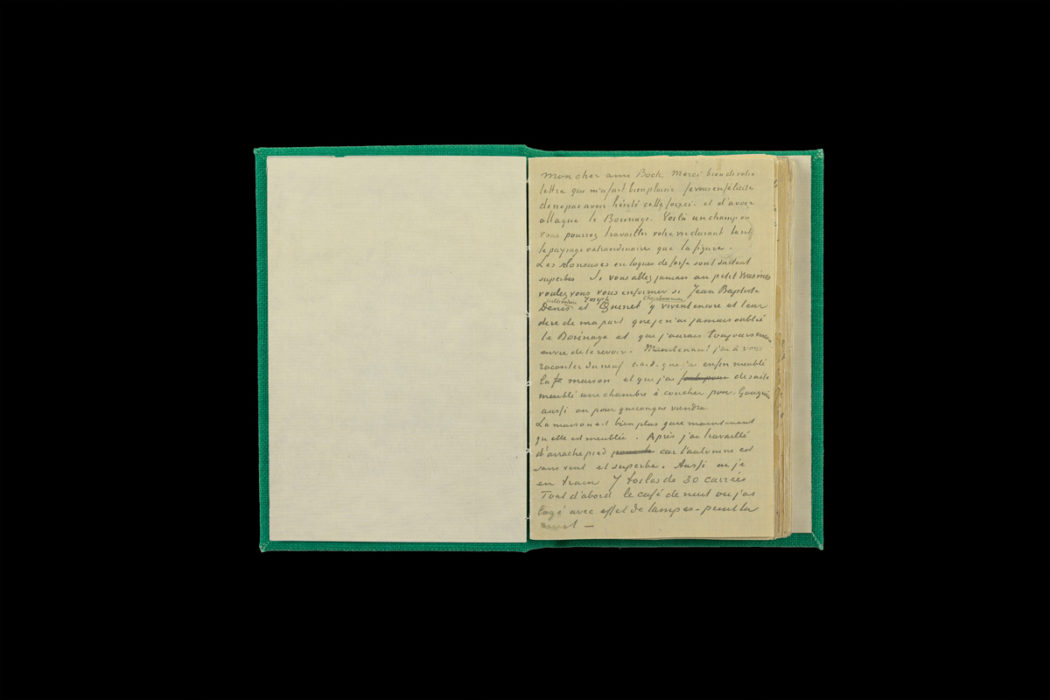 Mon cher ami Boch Merci bien de votre
lettre qui m'a fait bien plaisir. Je vous en félicite
de ne pas avoir hésité et d'avoir
attaqué le Borinage. Voilà un champ où
vous pourrez travailler votre vie durant
le paysage extraordinaire que la figure.
Les sloneuses en loques de fosse sont surtout
superbes Si vous allez jamais au petit Wasmes
voulez vous vous informer si Jean Baptiste
cultivateur Joseph charbonnier
Denis et Quenet y vivent encore et leur
dire de ma part que je n'ai jamais oublié
le Borinage et que j'aurais toujours
envie de le revoir. Maintenant j'ai à vous
raconter du neuf c.à.d. que j'ai enfin meublé
la maison et que j'ai de suite
meublé une chambre à coucher pour Gauguin
aussi ou pour quiconque viendra
La maison est bien plus gaie maintenant
qu'elle est meublée. Après j'ai travaillé
d'arrache pied car l'automne est
sans vent et superbe. Aussi ai je
en train 7 toiles de 30 carrées
Tout d'abord le café de nuit où j'ai
logé avec effet de lampes - peint la
nuit —